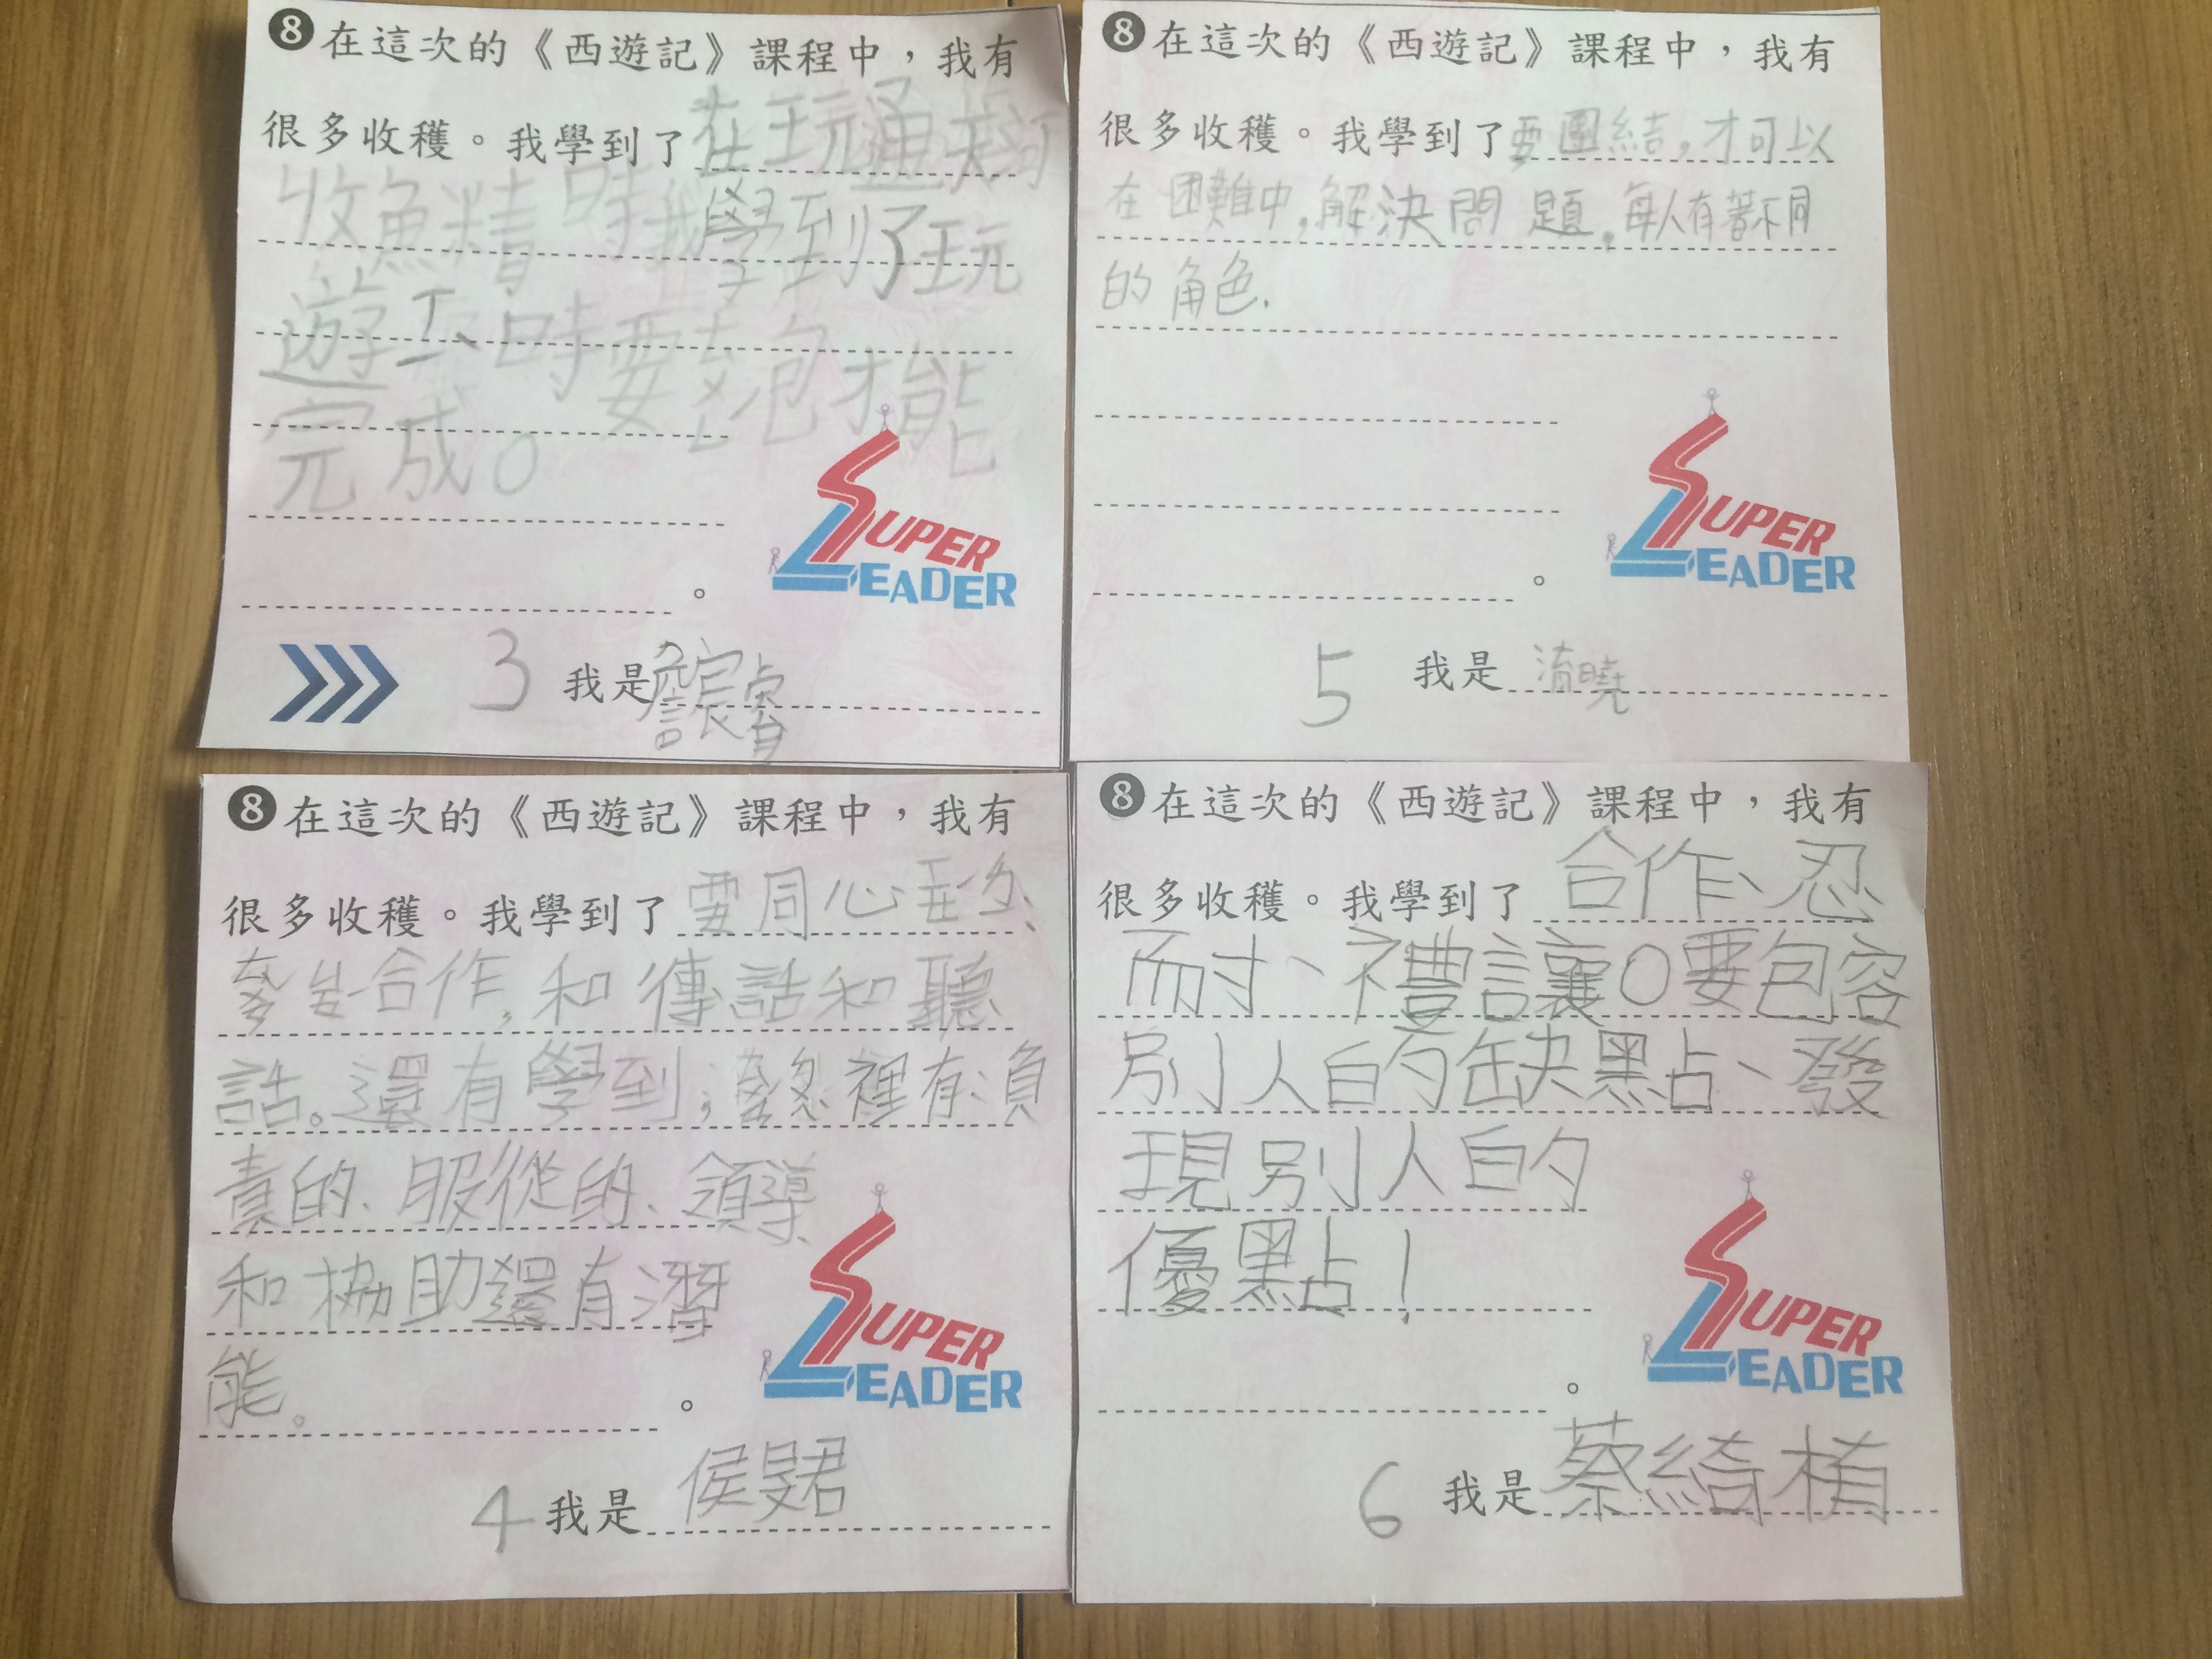 ❽在這次的《西遊記》課程中，我有
很多收穫。我學到了在玩通天河
收魚精時我學到了玩
遊 時要 才能
完成。
SUPER
LEADER
。
3 我是詹宸睿
❽在這次的《西遊記》課程中，我有
很多收穫。我學到了要團結，才可以
在困難中，解決問題。每人有著不同
的角色.
SUPER
LEADER
。
5 我是淯曉
❽在這次的《西遊記》課程中，我有
很多收穫。我學到了要同心
合作，和傳話和聽
話。還有學到； 裡有負
責的、服從的、領導
和協助還有潛
能。
SUPER
LEADER
。
4 我是侯旻君
❽在這次的《西遊記》課程中，我有
很多收穫。我學到了合作、忍
耐、禮讓。要包容
別人的缺點、發
現別人的
優點！
SUPER
LEADER
。
6 我是蔡綺栯